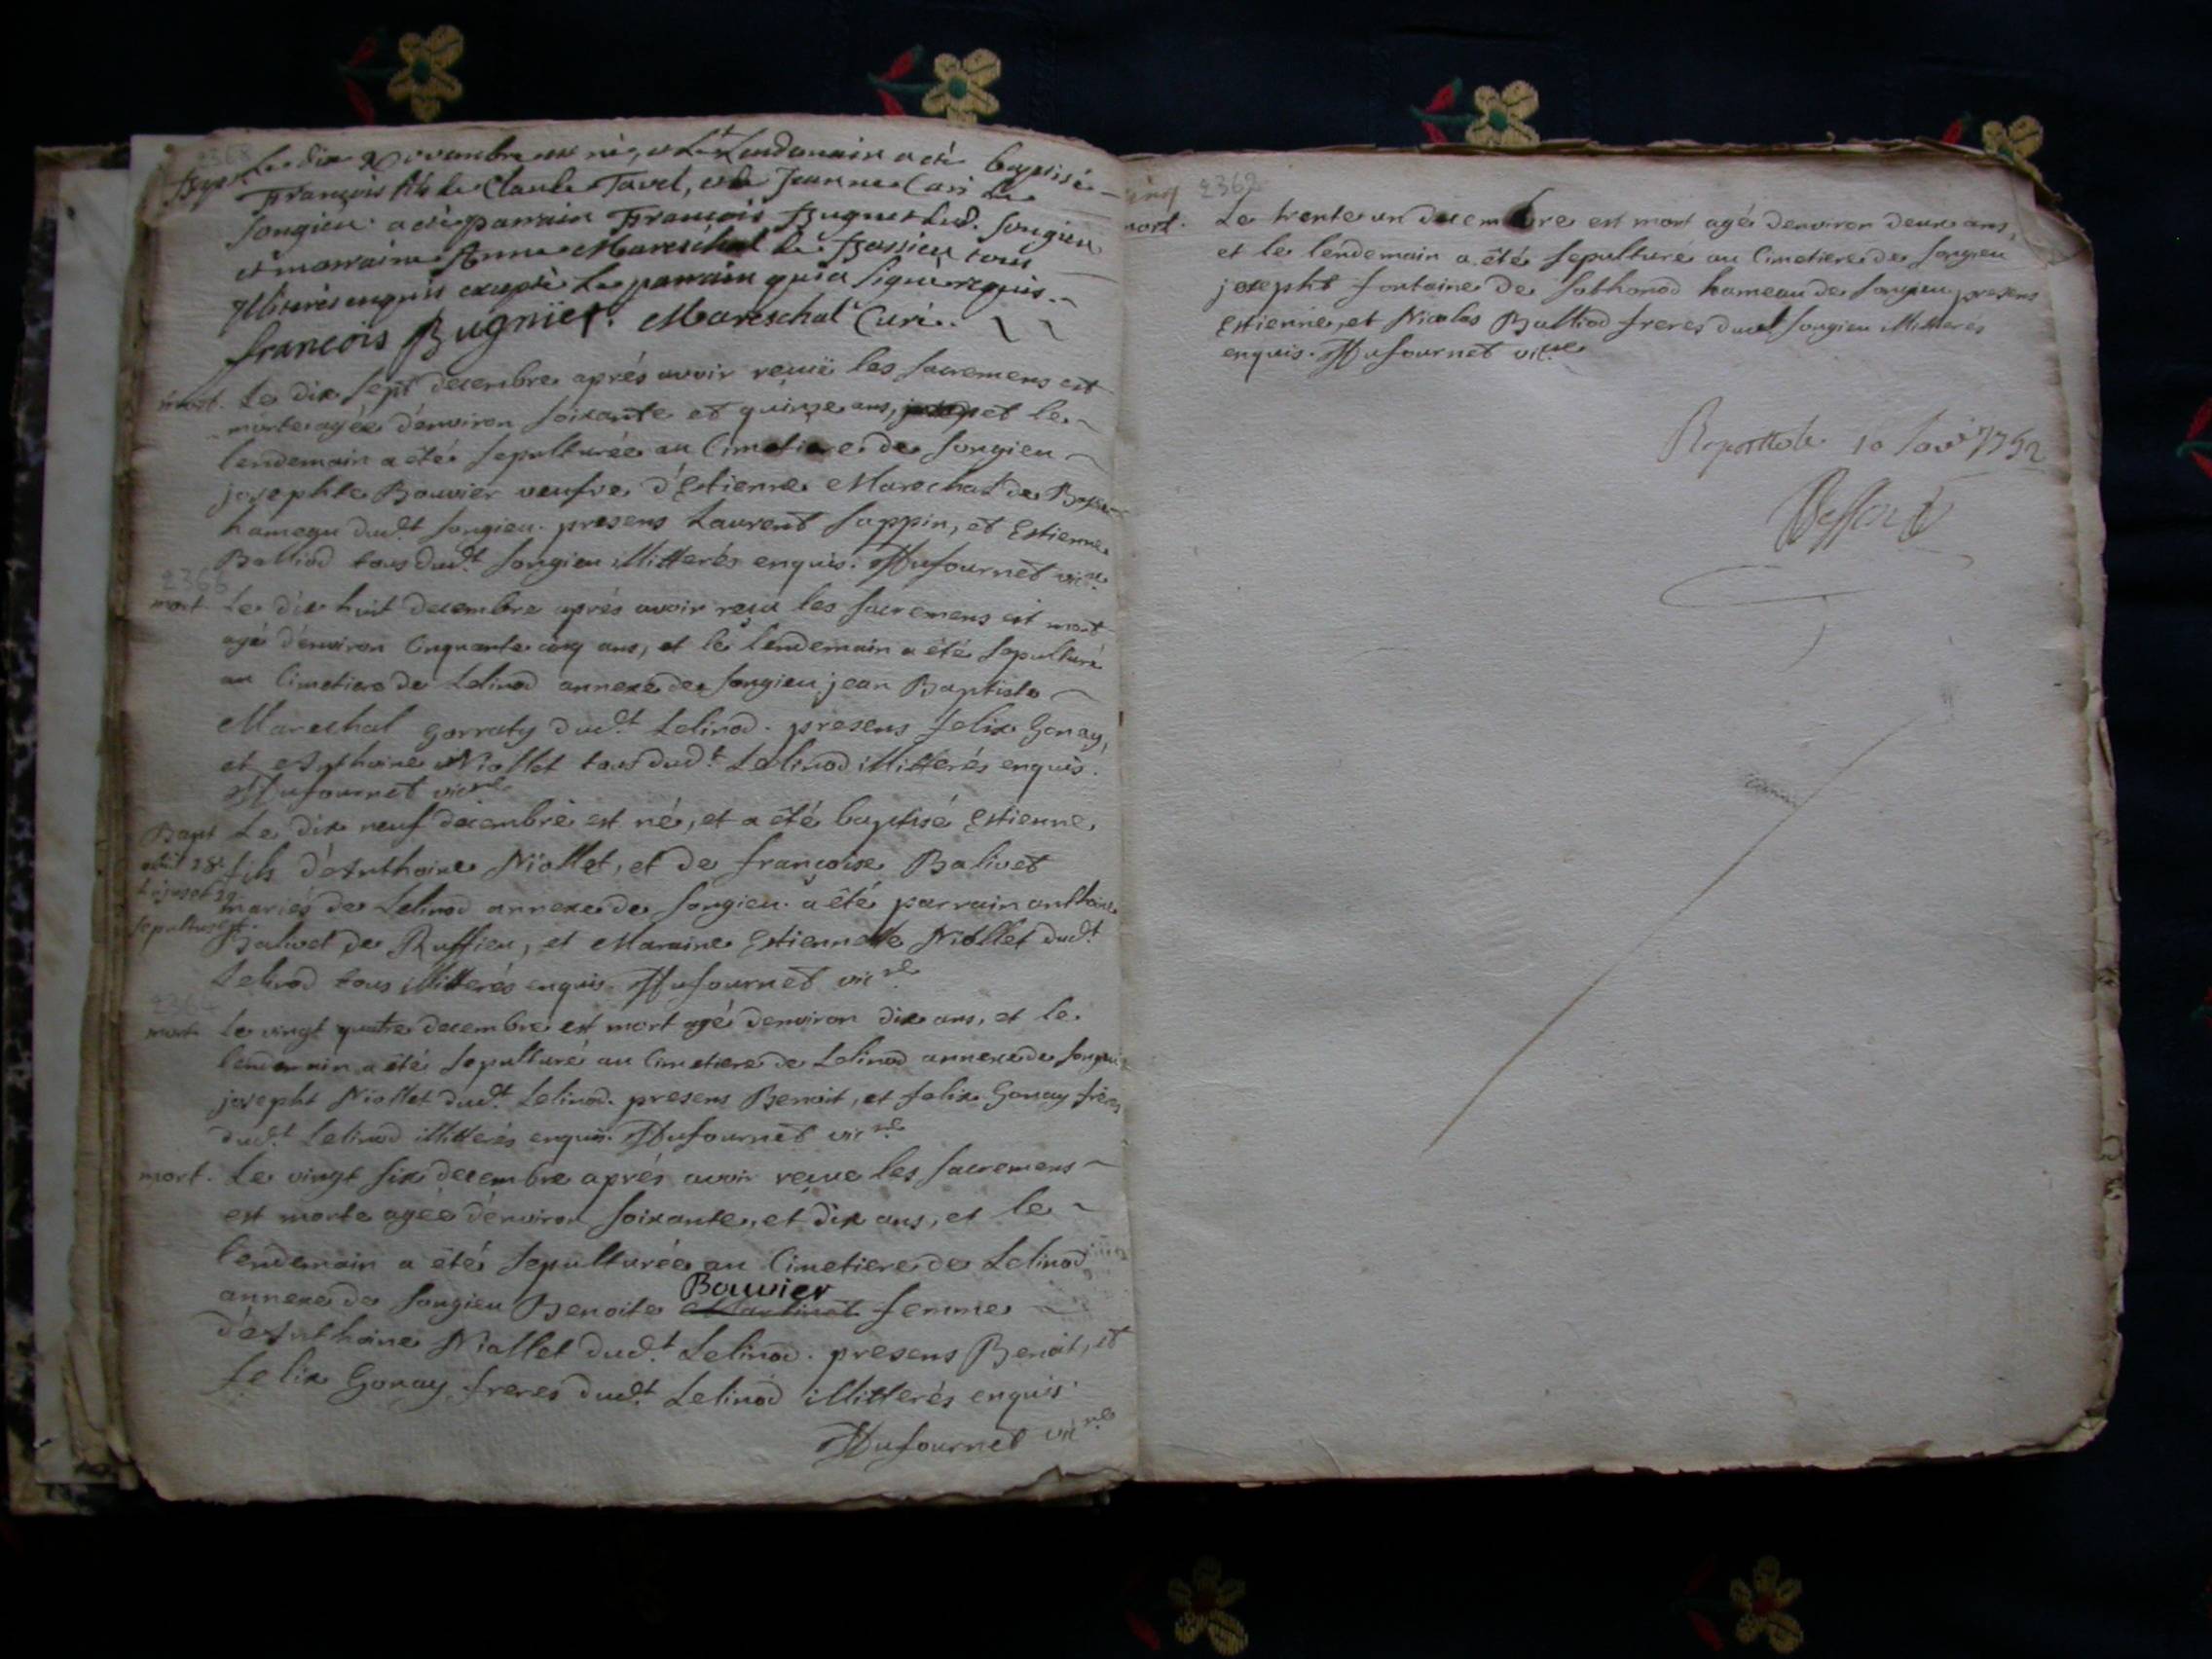 2368
Bapt. Le dix Novembre est né, et Le Lendemain a été baptisé
François fils de Claude Tavel, et de Jeanne Cari de
Songieu. a été parrain François Bugnet dud. Songieu
et marraine Anne Mareschal de Bassieu tous
Illiterés enquis excepté Le parrain qui a signé requis.
francois Bugniet. Mareschal Curé.
mort. Le dix sept decembre aprés avoir reçuë les sacremens est
morte agée d'environ soixante et quinze ans, et le
lendemain a été sepulturée au Cimetiere de Songieu
josephte Bouvier veufve d'Estienne Marechal de
hameau dud.t Songieu. presens Laurent Sappin, et Estienne
Balliod tous dud.t Songieu illitterés enquis. Dufournet vic.re
2366
mort. Le dix huit decembre aprés avoir reçu les sacremens est mort
agé d'environ Cinquante cinq ans, et le lendemain a été sepulturé
au Cimetiere de Lelinod annexe de Songieu jean Baptiste
Marechal Gorraty dud.t Lelinod. presens felix Gonay,
et Anthoine Niollet tous dud.t Lelinod illitterés enquis.
Dufournet vic.re
Bapt Le dix neuf decembre est né, et a été baptisé Estienne
obiit 28.
fils d'Anthoine Niollet, et de françoise Balivet
mariés de Lelinod annexe de Songieu. a été parrain anthoine
sepultus est.
Balivet de Ruffieu, et Maraine Estiennette Niollet dud.t
Lelinod tous illitterés enquis. Dufournet vic.re
2364
mort. Le vingt quatre decembre est mort agé denviron dix ans, et le
lendemain a été sepulturé au Cimetiere de Lelinod annexe de Songieu
josepht Niollet dud.t Lelinod. presens Benoit, et felix Gonay freres
dud.t Lelinod illitterés enquis. Dufournet vic.re
mort. Le vingt six decembre aprés avoir reçue les sacremens
est morte agée d'environ soixante, et dix ans, et le
lendemain a été sepulturée au Cimetiere de Lelinod
Bouvier
annexe de Songieu Benoite Martinod femme
d'Anthoine Niollet dud.t Lelinod. presens Benoit, et
felix Gonay freres dud.t Lelinod illitterés enquis
Dufournet vic.re
2362
mort. Le trente un decembre est mort agé denviron deux ans,
et le lendemain a été sepulturé au Cimetiere de Songieu
josepht fontaine de Sothonod hameau de Songieu, presens
Estienne, et Nicolas Balliod freres dud.t Songieu illitterés
enquis. Dufournet vic.re
10 1752